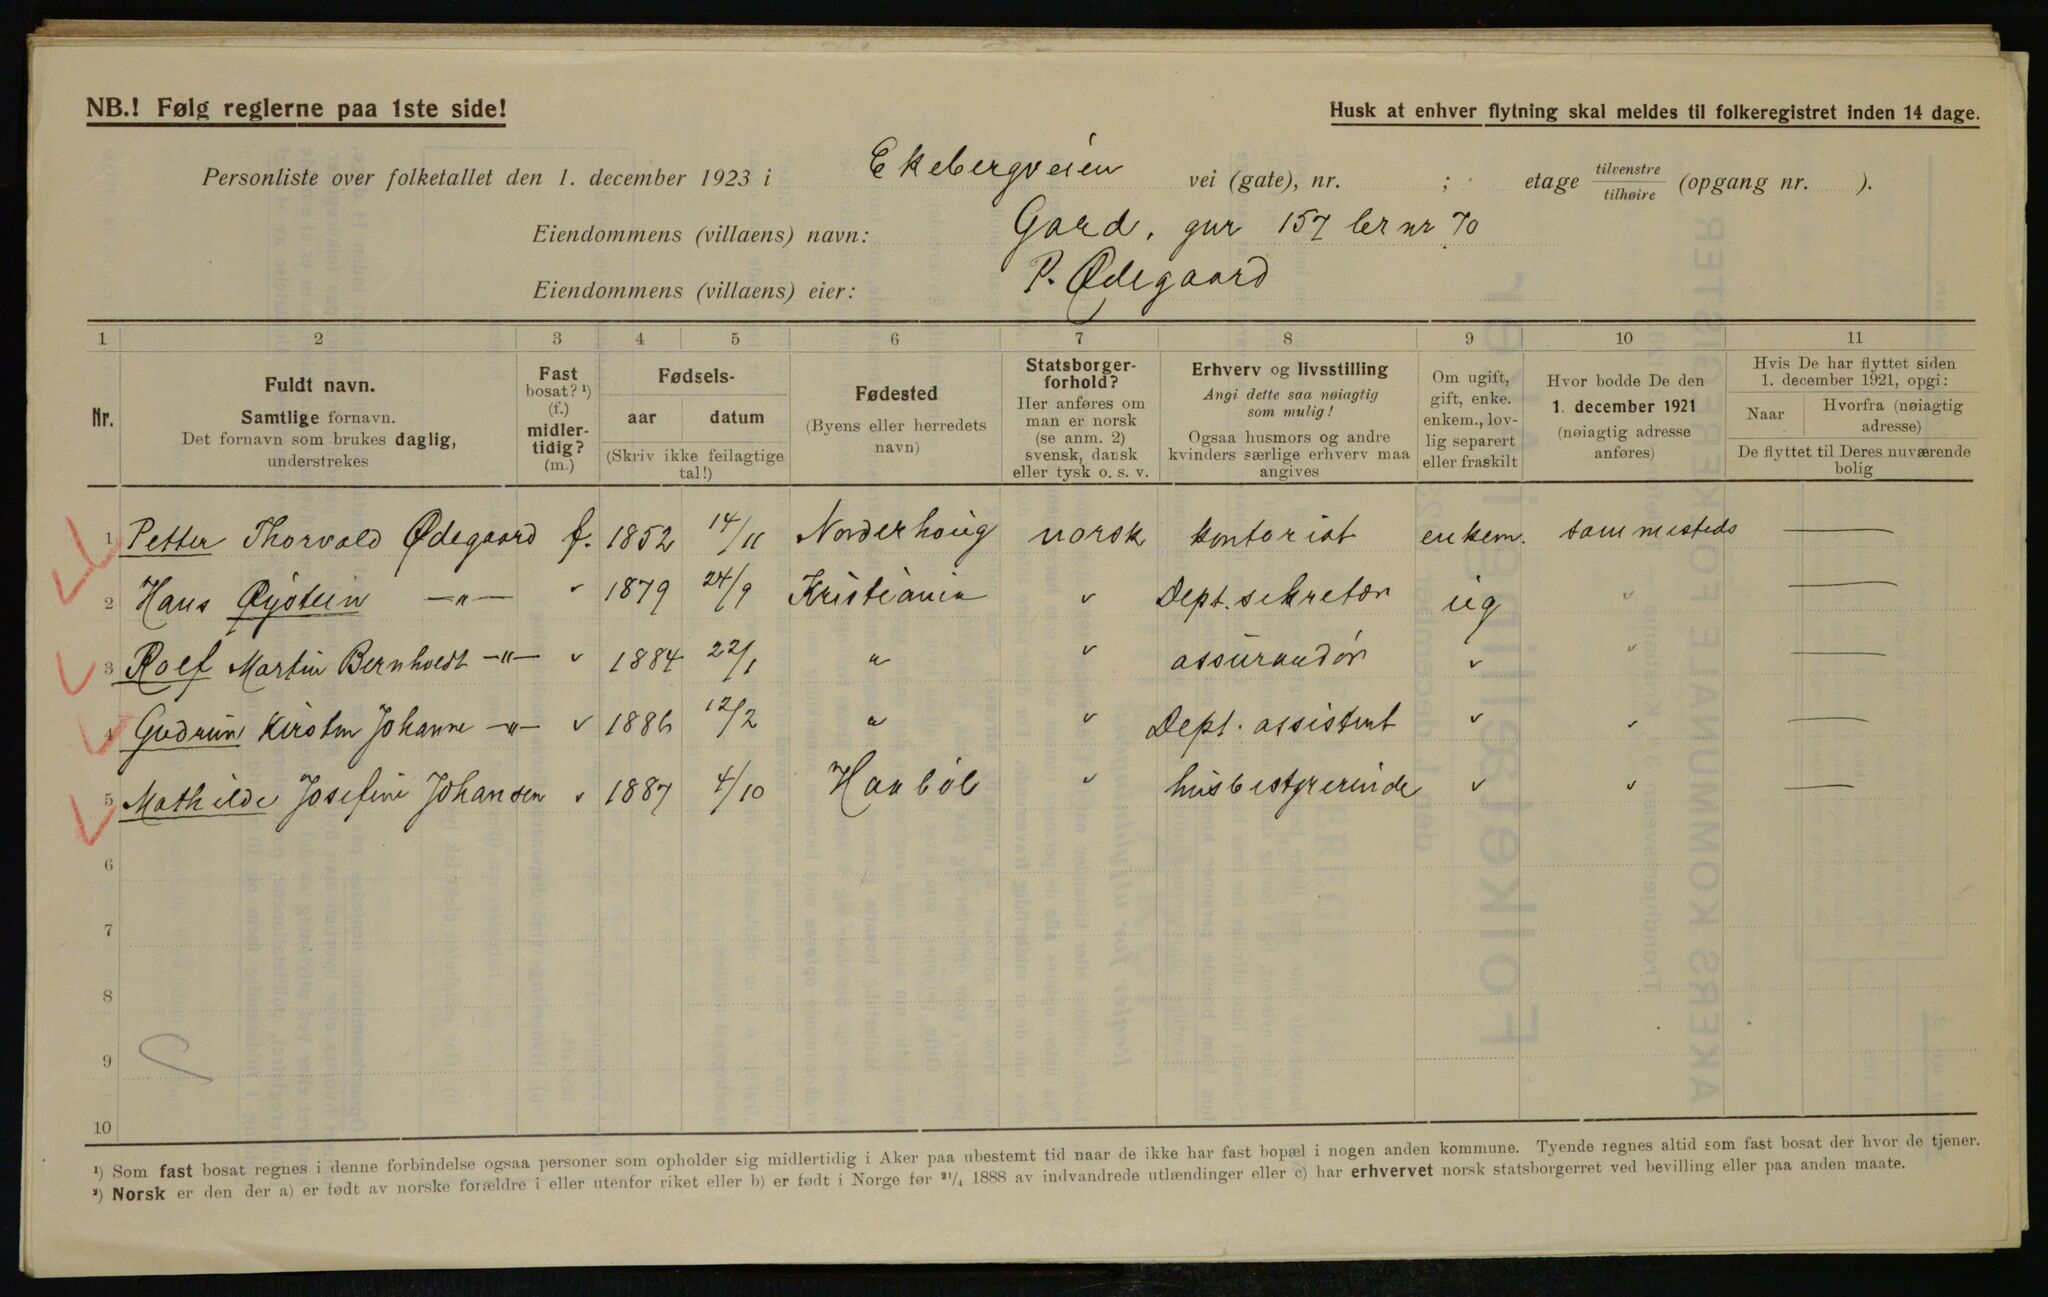 NB.! Følg reglerne paa 1ste side!
Husk at enhver flytning skal meldes til folkeregistret inden 14 dage.
Personliste over folketallet den 1. december 1923 i Ekebergveien vei (gate), nr. ; etage tilvenstre/tilhøire (opgang nr. ).
Eiendommens (villaens) navn: Gard, gnr 157 br nr 70
Eiendommens (villaens) eier: P. Ødegaard
1 2 3 4 5 6 7 8 9 10 11
Nr.
Fuldt navn.
Samtlige fornavn.
Det fornavn som brukes daglig,
understrekes
Fast
bosat? ¹)
(f.)
midler-
tidig?
(m.)
Fødsels-
aar datum
(Skriv ikke feilagtige
tal!)
Fødested
(Byens eller herredets
navn)
Statsborger-
forhold?
Her anføres om
man er norsk
(se anm. 2)
svensk, dansk
eller tysk o. s. v.
Erhverv og livsstilling
Angi dette saa nøiagtig
som mulig!
Ogsaa husmors og andre
kvinders særlige erhverv maa
angives
Om ugift,
gift, enke.
enkem., lov-
lig separert
eller fraskilt
Hvor bodde De den
1. december 1921
(nøiagtig adresse
anføres)
Hvis De har flyttet siden
1. december 1921, opgi:
Naar Hvorfra (nøiagtig
adresse)
De flyttet til Deres nuværende
bolig
1 Petter Thorvald Ødegaard f. 1852 14/11 Norderhoug norsk kontorist enkem. sammesteds —
2 Hans Øystein —"— " 1879 24/9 Kristiania " Dept. sekretær ug " —
3 Rolf Martin Bernholdt —"— " 1884 22/1 " " assurandør " " —
4 Gudrun Kirsten Johanne —"— " 1886 12/2 " " Dept. assistent " " —
5 Mathilde Josefine Johansen " 1887 4/10 Haabøl " husbestyrerinde " " —
6
7
8
9
10
¹) Som fast bosat regnes i denne forbindelse ogsaa personer som opholder sig midlertidig i Aker paa ubestemt tid naar de ikke har fast bopæl i nogen anden kommune. Tyende regnes altid som fast bosat der hvor de tjener.
²) Norsk er den der a) er født av norske forældre i eller utenfor riket eller b) er født i Norge før 21/4 1888 av indvandrede utlændinger eller c) har erhvervet norsk statsborgerret ved bevilling eller paa anden maate.